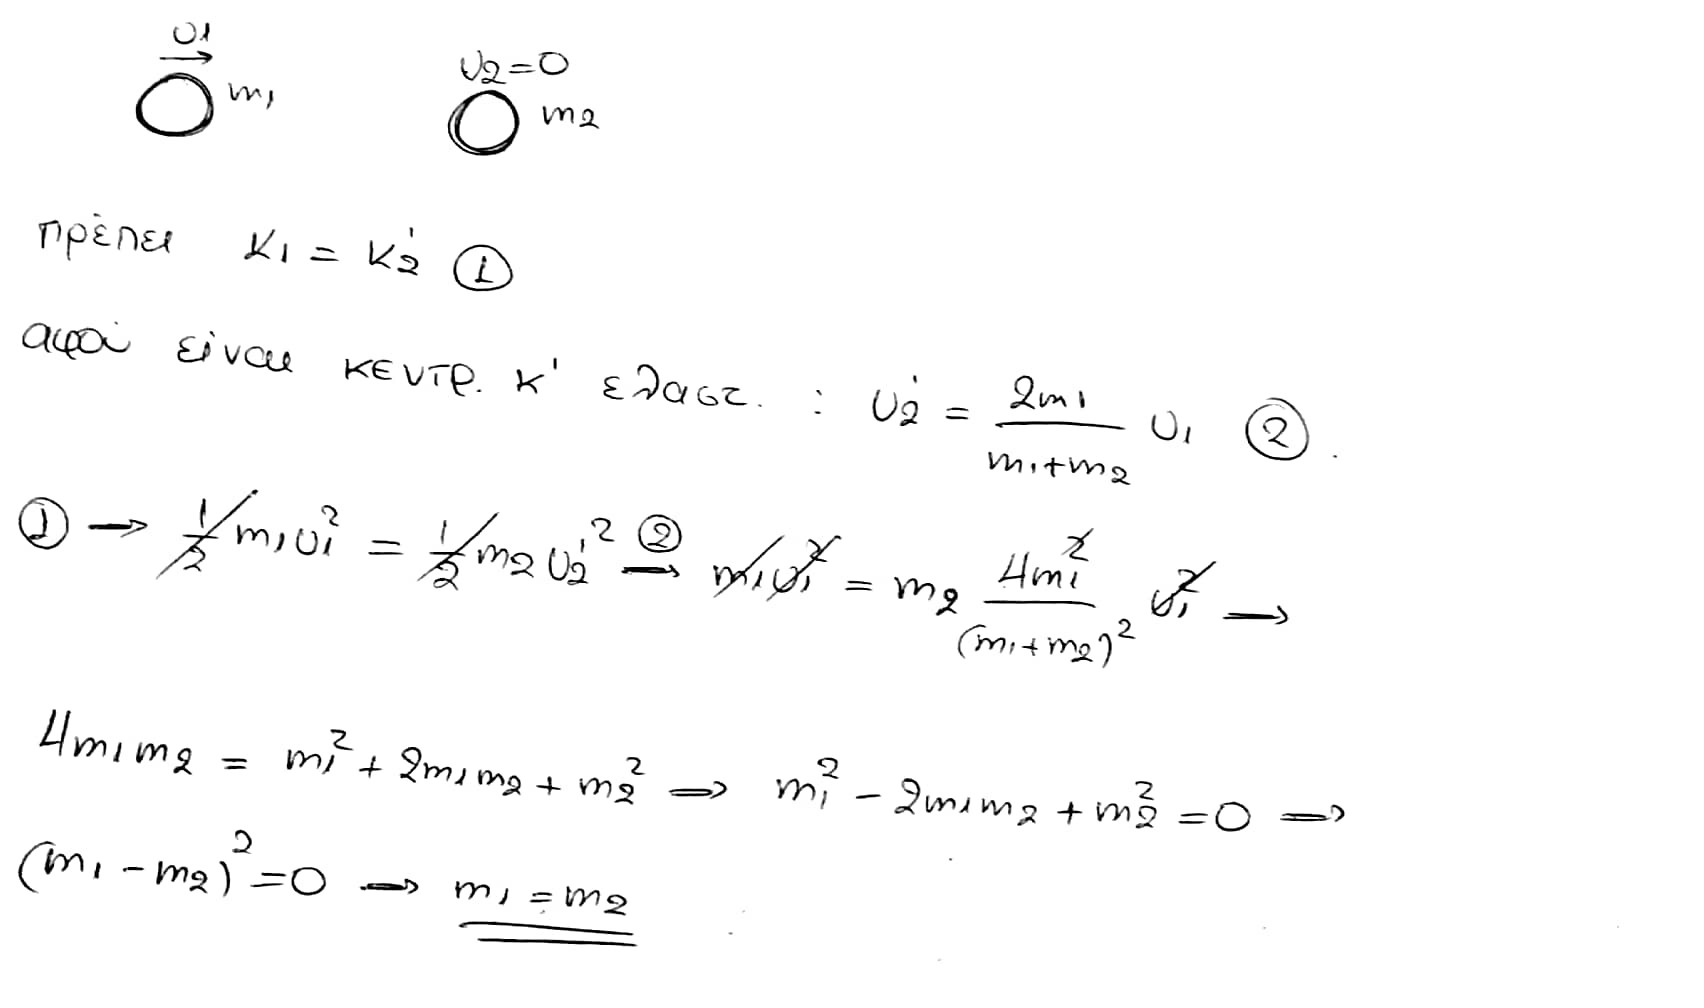 υ1
→
m1
υ2=0
m2
πρέπει K1 = K2' ①
αφού είναι κεντρ. κ' ελαστ. : υ2' = 2m1/(m1+m2) υ1 ②.
① → 1/2 m1υ1² = 1/2 m2υ2'² ②→ m1υ1² = m2 4m1²/(m1+m2)² υ1² →
4m1m2 = m1² + 2m1m2 + m2² → m1² - 2m1m2 + m2² = 0 →
(m1 - m2)² = 0 → m1 = m2